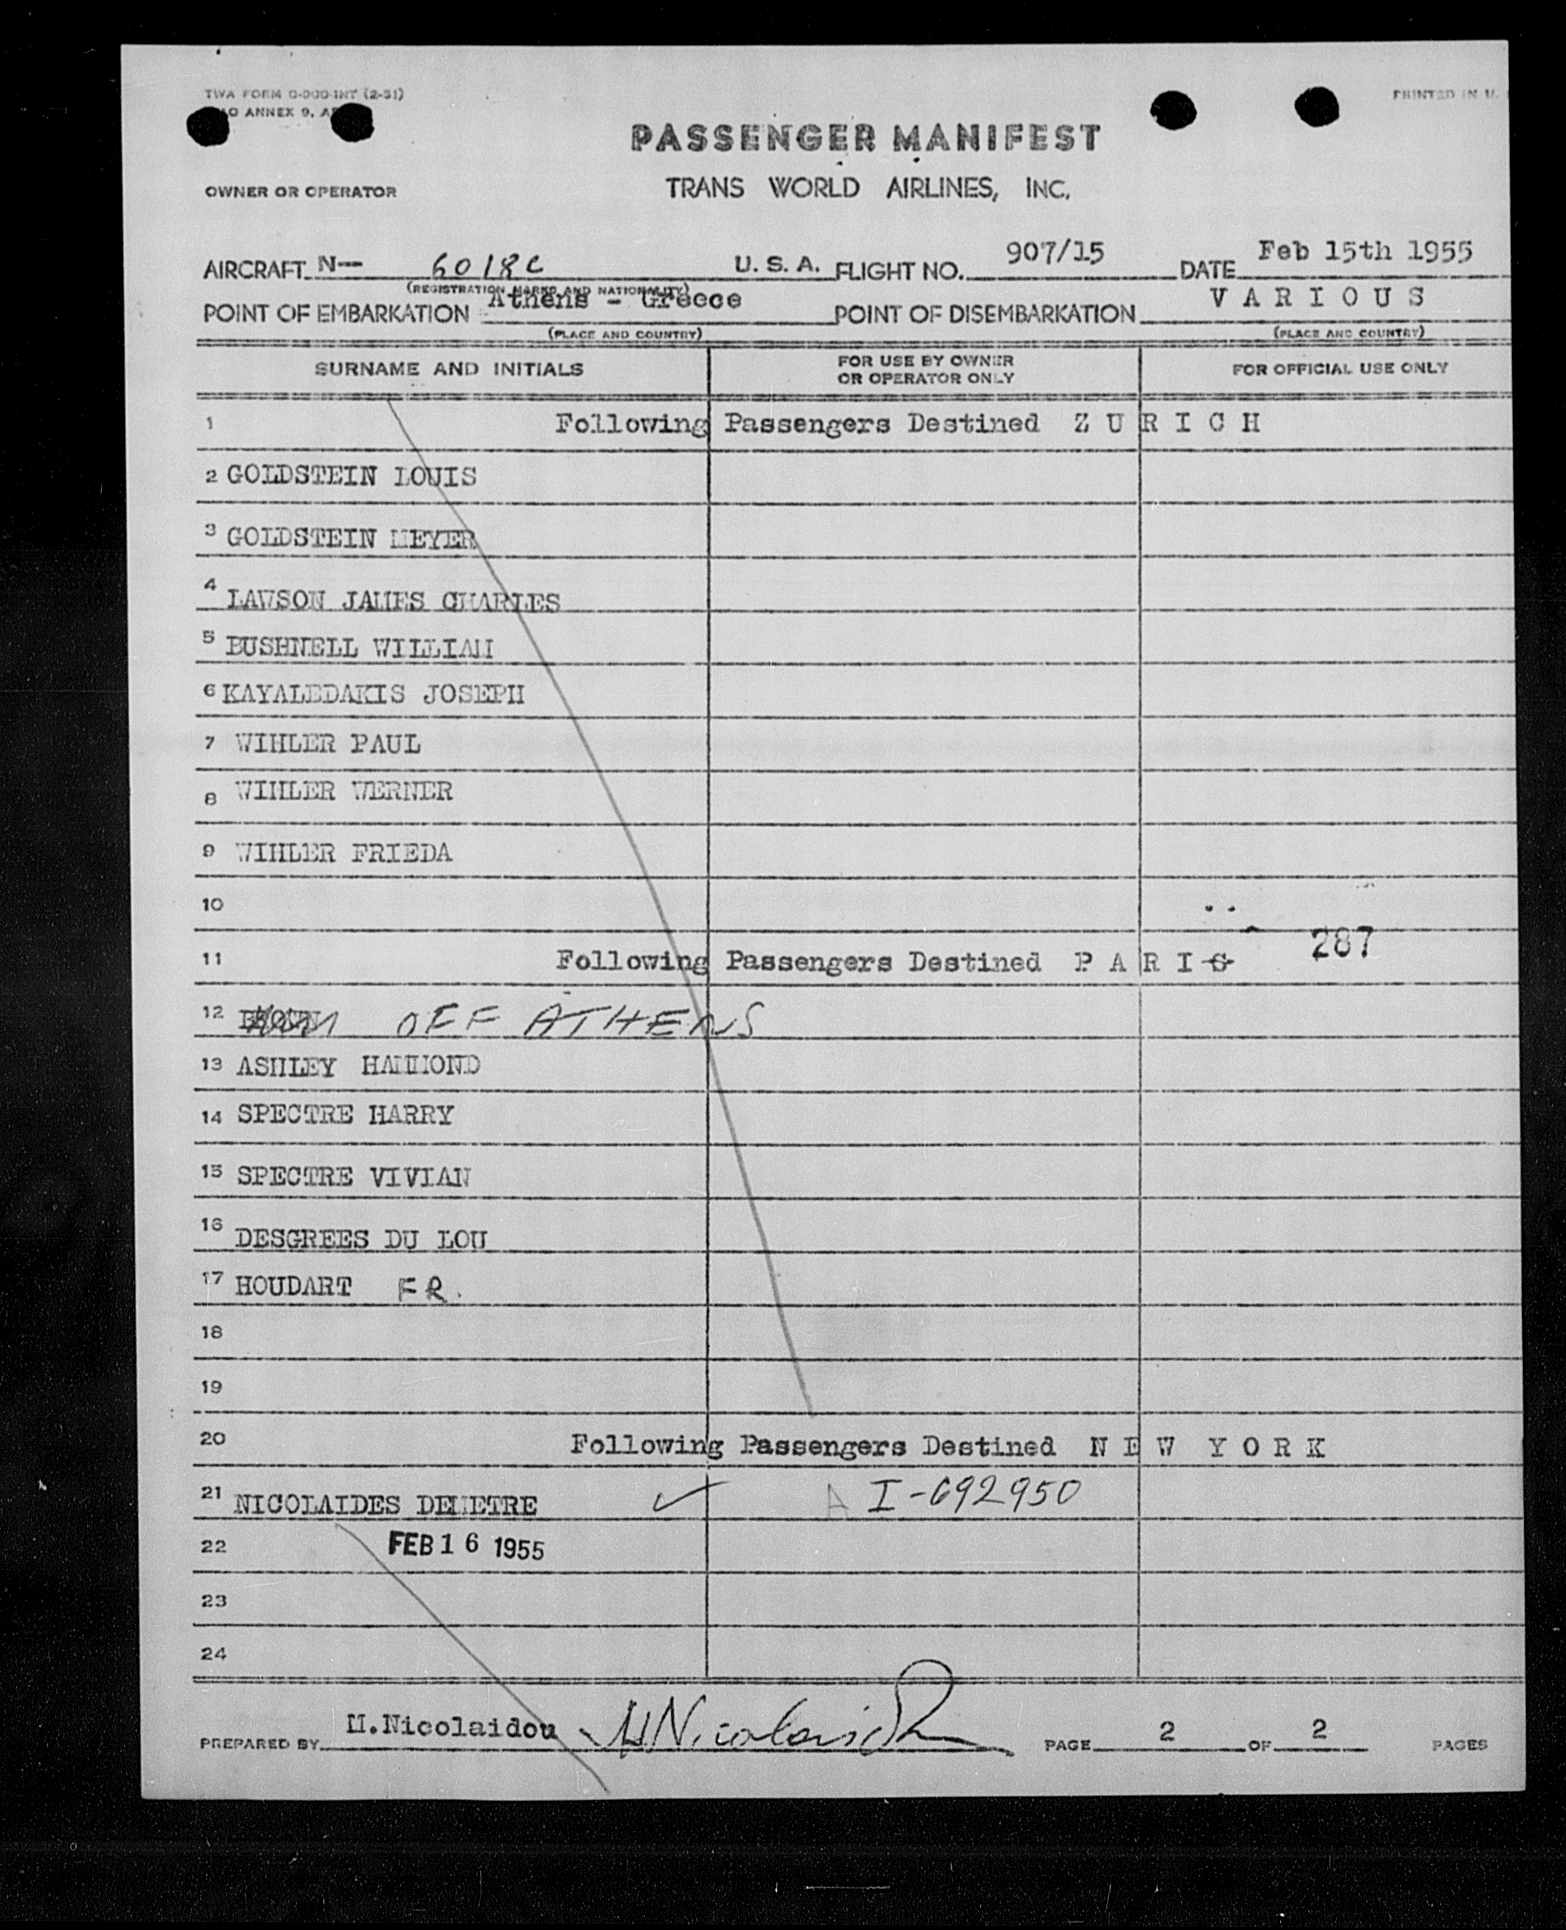 TWA FORM
ANNEX 9,
PRINTED IN U.
PASSENGER MANIFEST
OWNER OR OPERATOR TRANS WORLD AIRLINES, INC.
AIRCRAFT N— 6018C U. S. A. FLIGHT NO. 907/15 DATE Feb 15th 1955
(REGISTRATION MARKS AND NATIONALITY)
POINT OF EMBARKATION Athens - Greece POINT OF DISEMBARKATION V A R I O U S
(PLACE AND COUNTRY) (PLACE AND COUNTRY)
SURNAME AND INITIALS FOR USE BY OWNER OR OPERATOR ONLY FOR OFFICIAL USE ONLY
1 Following Passengers Destined Z U R I C H
2 GOLDSTEIN LOUIS
3 GOLDSTEIN MEYER
4 LAWSON JAMES CHARLES
5 BUSHNELL WILLIAM
6 KAYALEDAKIS JOSEPH
7 WIHLER PAUL
8 WIHLER WERNER
9 WIHLER FRIEDA
10
287
11 Following Passengers Destined P A R I S
12 OFF ATHENS
13 ASHLEY HAMMOND
14 SPECTRE HARRY
15 SPECTRE VIVIAN
16 DESGREES DU LOU
17 HOUDART FR.
18
19
20 Following Passengers Destined N E W Y O R K
21 NICOLAIDES DEMETRE A I-692950
22 FEB 16 1955
23
24
PREPARED BY M.Nicolaidou PAGE 2 OF 2 PAGES